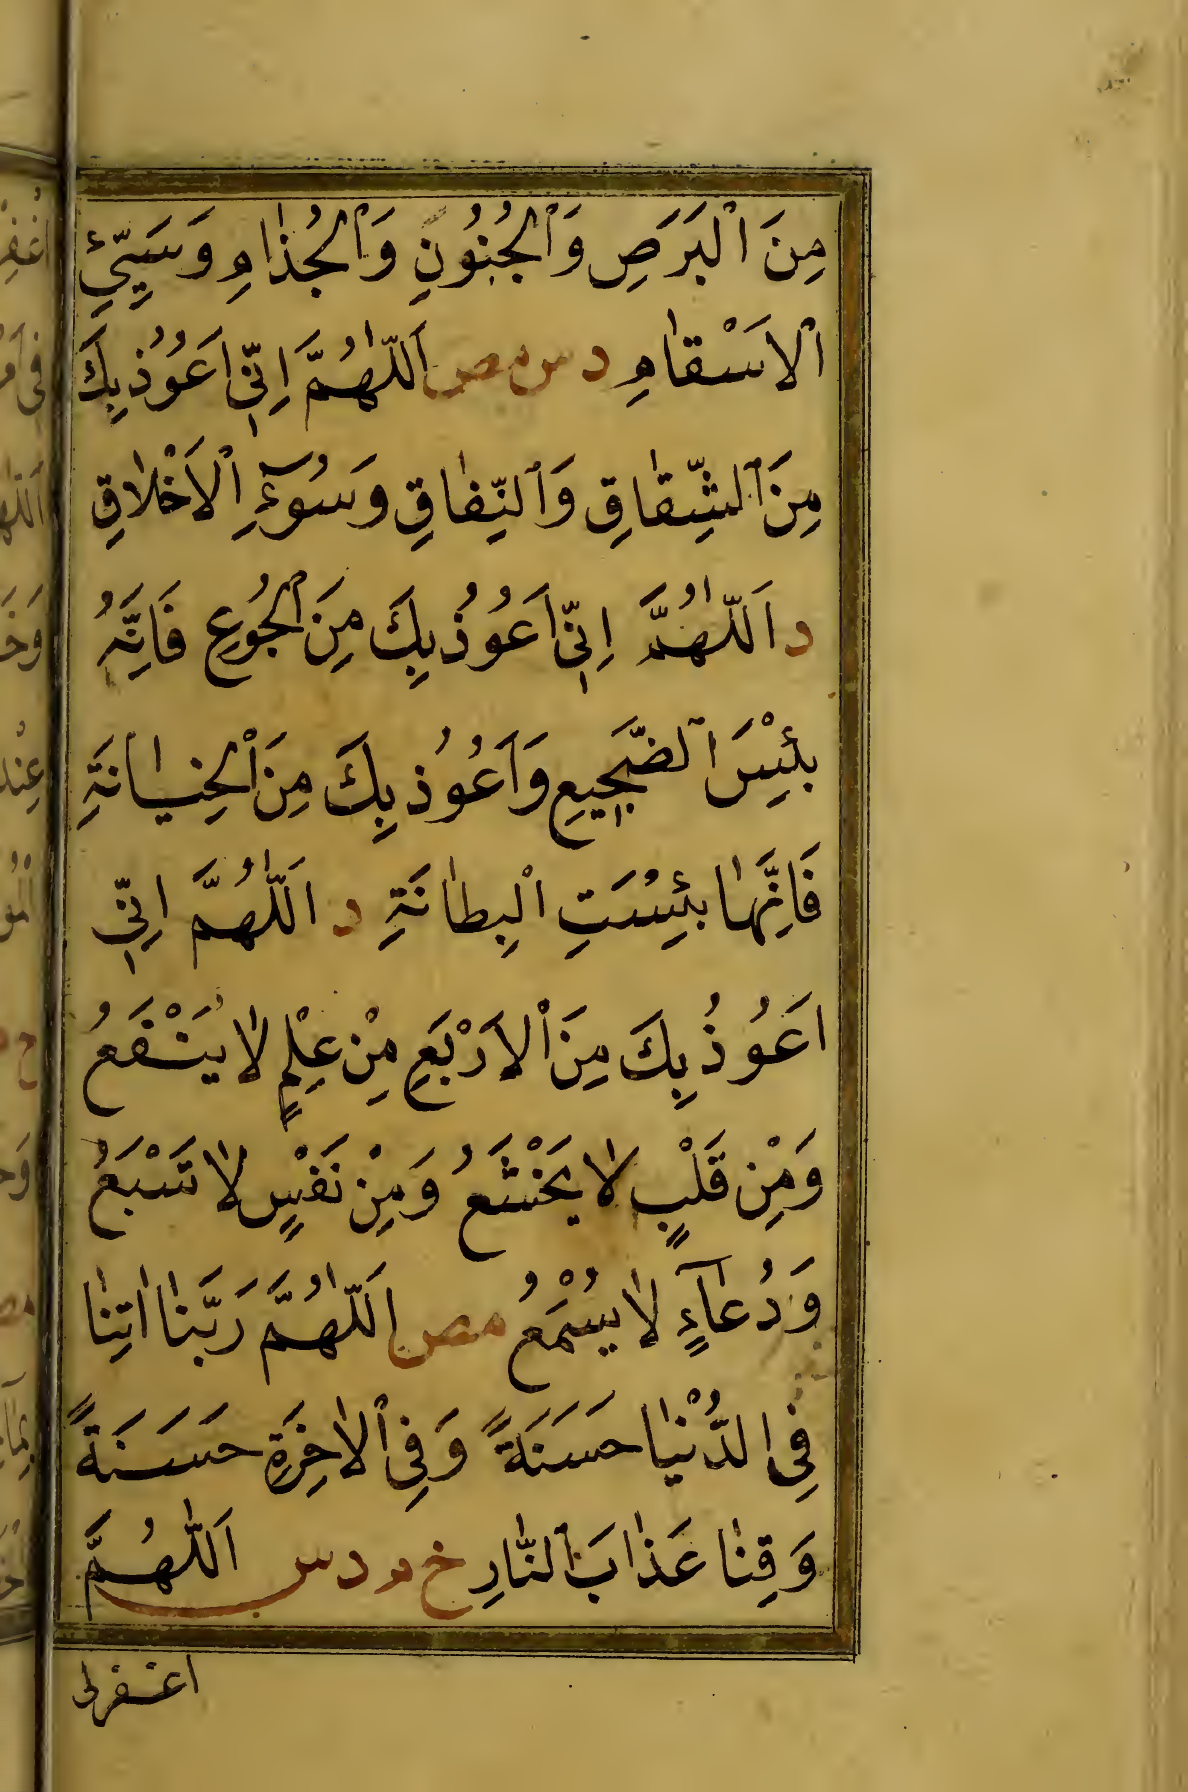 مِنَ ٱلْبَرَصِ وَٱلْجُنُونِ وَٱلْجُذَامِ وَسَيِّئِ
ٱلْاَسْقَامِ د س مص اَللّٰهُمَّ اِنِّي اَعُوذُ بِكَ
مِنَ ٱلشِّقَاقِ وَٱلنِّفَاقِ وَسُوٓءِ ٱلْاَخْلَاقِ
د اَللّٰهُمَّ اِنِّي اَعُوذُ بِكَ مِنَ ٱلْجُوعِ فَاِنَّهُ
بِئْسَ ٱلضَّجِيعِ وَاَعُوذُ بِكَ مِنَ ٱلْخِيَانَةِ
فَاِنَّهَا بِئْسَتِ ٱلْبِطَانَةِ د اَللّٰهُمَّ اِنِّي
اَعُوذُ بِكَ مِنَ ٱلْاَرْبَعِ مِنْ عِلْمٍ لَا يَنْفَعُ
وَمِنْ قَلْبٍ لَا يَخْشَعُ وَمِنْ نَفْسٍ لَا تَشْبَعُ
وَدُعَآءٍ لَا يُسْمَعُ مص اَللّٰهُمَّ رَبَّنَا اٰتِنَا
فِي الدُّنْيَا حَسَنَةً وَفِي ٱلْاٰخِرَةِ حَسَنَةً
وَقِنَا عَذَابَ ٱلنَّارِ خ م د س اَللّٰهُمَّ
اغفرلى